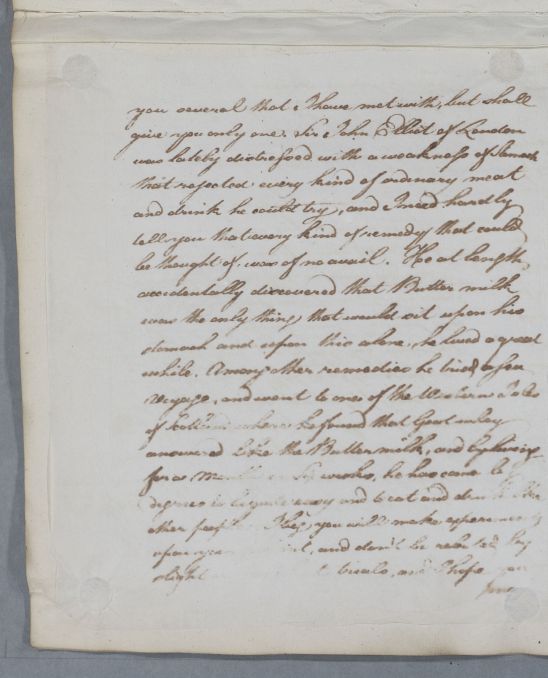 you several that I have met with, but shall
give you only one. Sir John Elliot of London
was lately distressed with a weakness of Stomach
that rejected every kind of ordinary meat
and drink he could try, and I need hardly
tell you that every kind of remedy that could
be thought of was of no avail. He at length
accidentally discovered that Butter milk
was the only thing that would sit upon his
stomach and upon this alone, he lived a great
while. Among other remedies he tried a Sea
Voyage, and went to one of the Western Isles
of Scotland where he found that Goat whey
answered like the Butter milk, and by living
for a weeks, he has come by
degrees to and to eat and drink like
other people. I beg you will make experiments
upon your and don't be by
slight trials, and I hope you